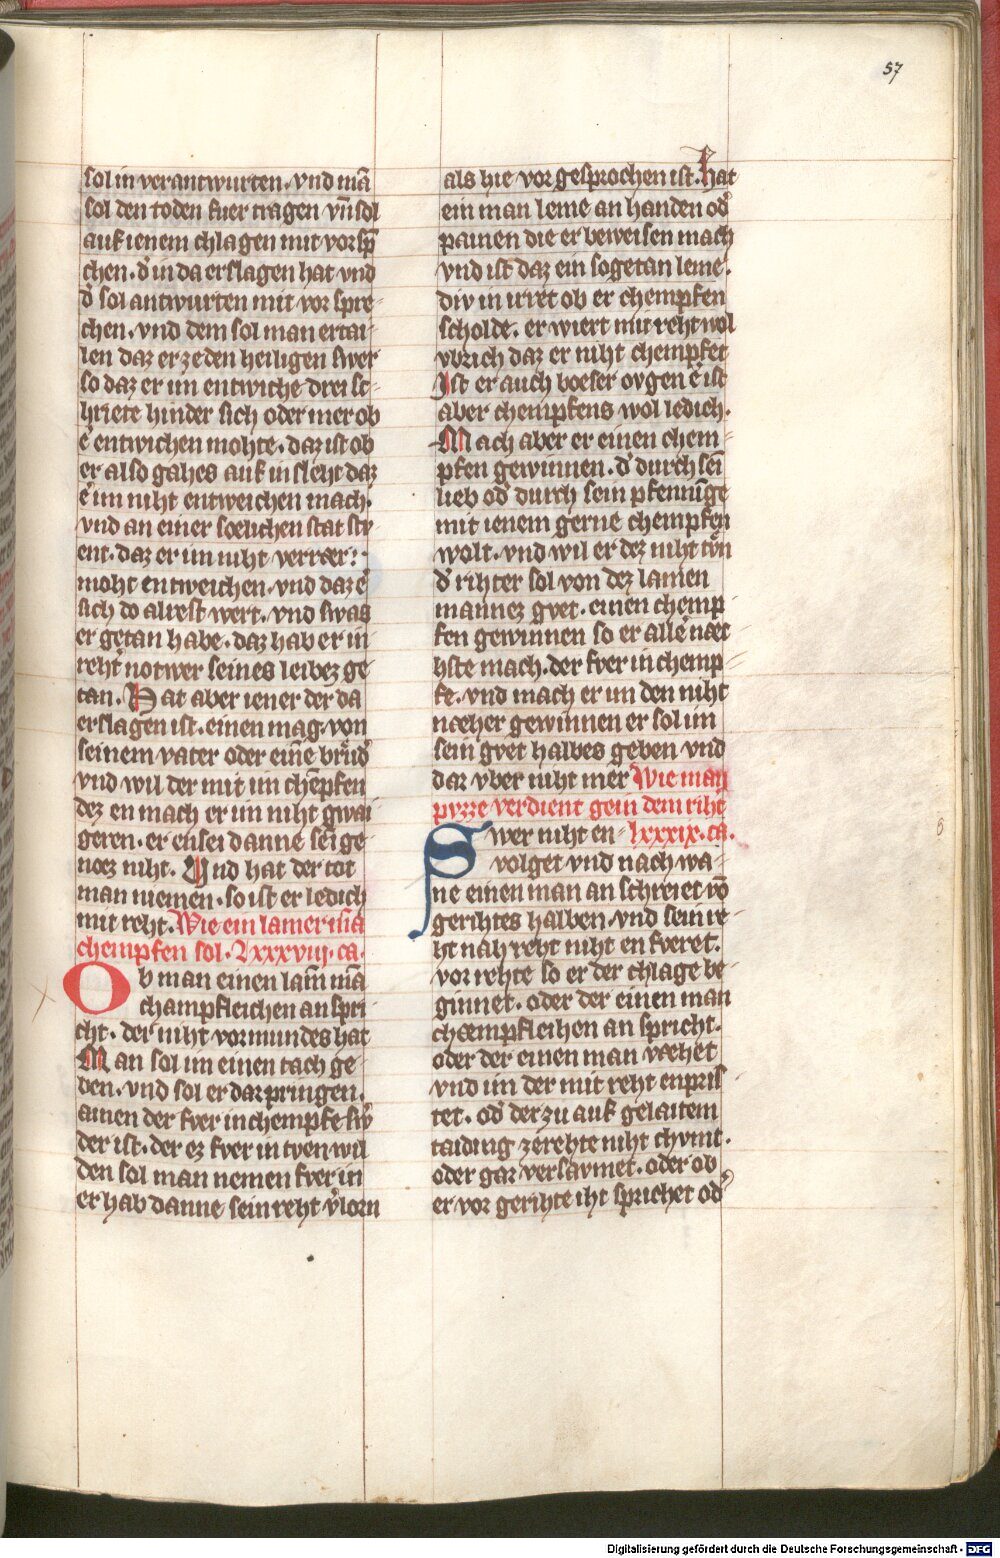 57
sol in verantwurten. vnd mā
sol den toden fuer tragen vn̄ sol
auf ienem chlagen mit vorsp̄
chen. d͛ in da erslagen hat vnd
d͛ sol antwurten mit vor spre-
chen. vnd dem sol man ertai-
len daz er ze den heiligen swer
so daz er im entwiche drei sc-
hriete hinder sich oder mer ob
e͛ entwichen mohte. daz ist ob
er also gahes auf in sleht daz
e͛ im niht entweichen mach.
vnd an einer soelichen stat stv-
ent. daz er im niht verrer:
moht entweichen. vnd daz e͛
sich do alrest wert. vnd swas
er getan habe. daz hab er in
reht͛ notwer seines leibez ge
tan. Hat aber iener der da
erslagen ist. einen mag. von
seinem vater oder eine͛ brůd͛
vnd wil der mit im chēpfen
dez en mach er im niht gwai
geren. er ensei danne sei͛ ge
noz niht. Vnd hat der tot
man niemen. so ist er ledich
mit reht. Wie ein lamer mā
chempfen sol. Lxxxviii. ca.
Ob man einen lam̄ mā
champfleichen an spri
cht. der niht vormundes hat
Man sol im einen tach ge
ben. vnd sol er dar pringen.
ainen der fver in chempfe siv͛
der ist. der ez fver in tven wil
den sol man nemen fver in
er hab danne sein reht v͛lorn
als hie vor gesprochen ist. Hat
ein man leme an handen od͛
painen die er beweisen mach
vnd ist daz ein sogetan leme.
div in irret ob er chempfen
scholde. er wiert mit reht wol
vbrich daz er niht chempfet
Ist er auch boeser ovgen e͛ ist
aber chempfens wol ledich.
Mach aber er einen chem-
pfen gewinnen. d͛ durch sei͛
lieb od͛ durch sein pfenni͛ge
mit ienem gerne chempfen
wolt. vnd wil er dez niht tv͛n
d͛ rihter sol von dez lamen
mannez gvet. einen chemp-
fen gewinnen so er alle͛ næc-
hste mach. der fver in chemp-
fe. vnd mach er im den niht
næher gewinnen er sol im
sein gvet halbes geben vnd
dar vber niht mer Wie man
pvzze verdient gein dem riht͛
Swer niht en- lxxxix. ca.
volget vnd nach wa-
ne einen man an schreiet vo͛
gerihtes halben. vnd sein re-
ht nah reht niht en fveret.
vor rehte so er der chlage be-
ginnet. oder der einen man
chæmpfleihen an spricht.
oder der einen man væhet
vnd im der mit reht enpris
tet. od͛ der zu auf gelaitem
taiding ze rehte niht chvmt.
oder gar versavmet. oder ob
er vor gerihte iht sprichet od͛
Digitalisierung gefördert durch die Deutsche Forschungsgemeinschaft - DFG